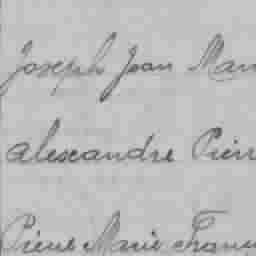 Joseph Jean Mari
Alexandre Pierr
Pierre Marie Franç